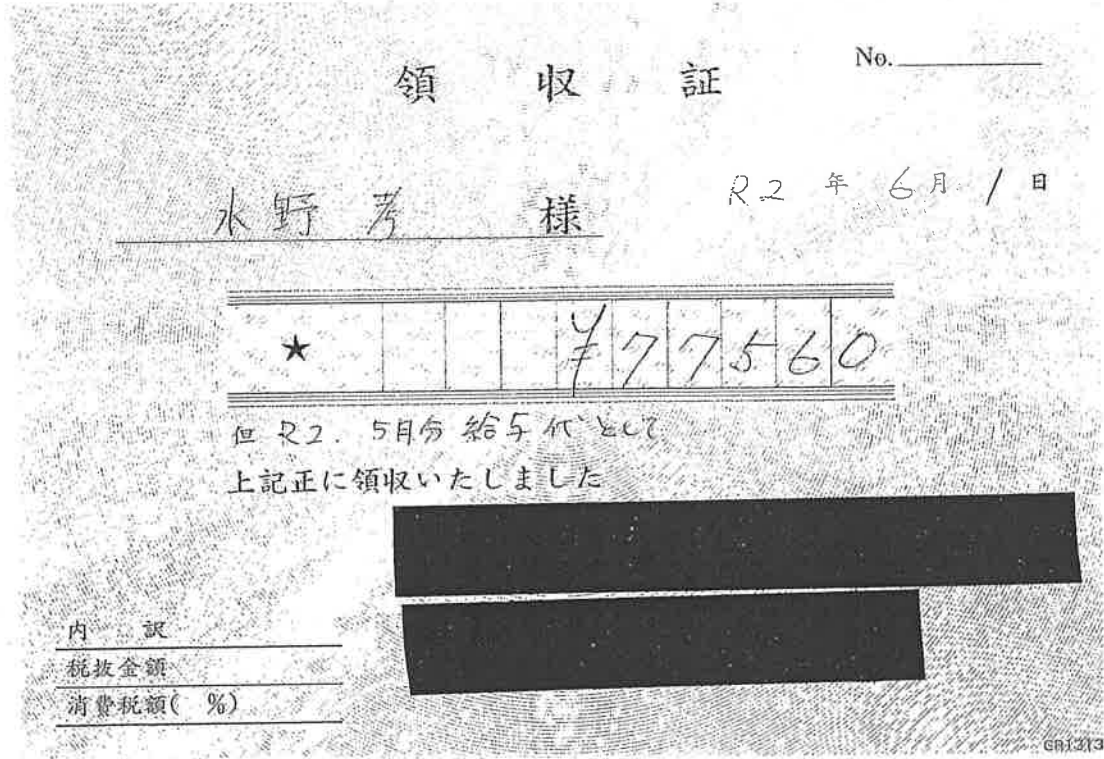 領収証
No.
R2年6月1日
水野 孝 様
★ ¥77560
但 R2. 5月分 給与代として
上記正に領収いたしました
内訳
税抜金額
消費税額( %)
GR1313